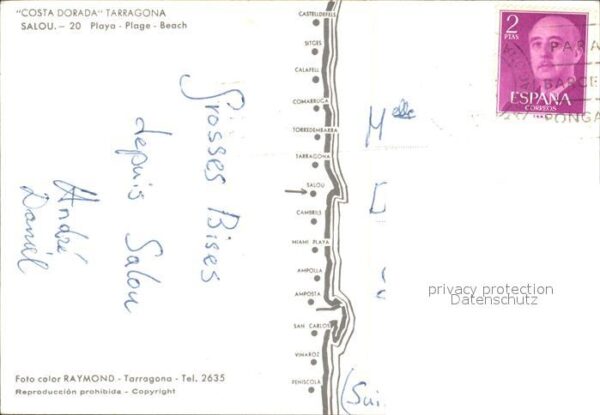 "COSTA DORADA" TARRAGONA
SALOU. - 20 Playa - Plage - Beach
Grosses Bises
depuis Salou
André
Daniel
CASTELLDEFELS
SITGES
CALAFELL
COMARRUGA
TORREDEMBARRA
TARRAGONA
SALOU
CAMBRILS
MIAMI PLAYA
AMPOLLA
AMPOSTA
SAN CARLOS
VINAROZ
PENISCOLA
Foto color RAYMOND - Tarragona - Tel. 2635
Reproducción prohibida - Copyright
2
PTAS
ESPAÑA
CORREOS
PARA
BARCE
PONGA
Melle
D
(Sui
privacy protection
Datenschutz